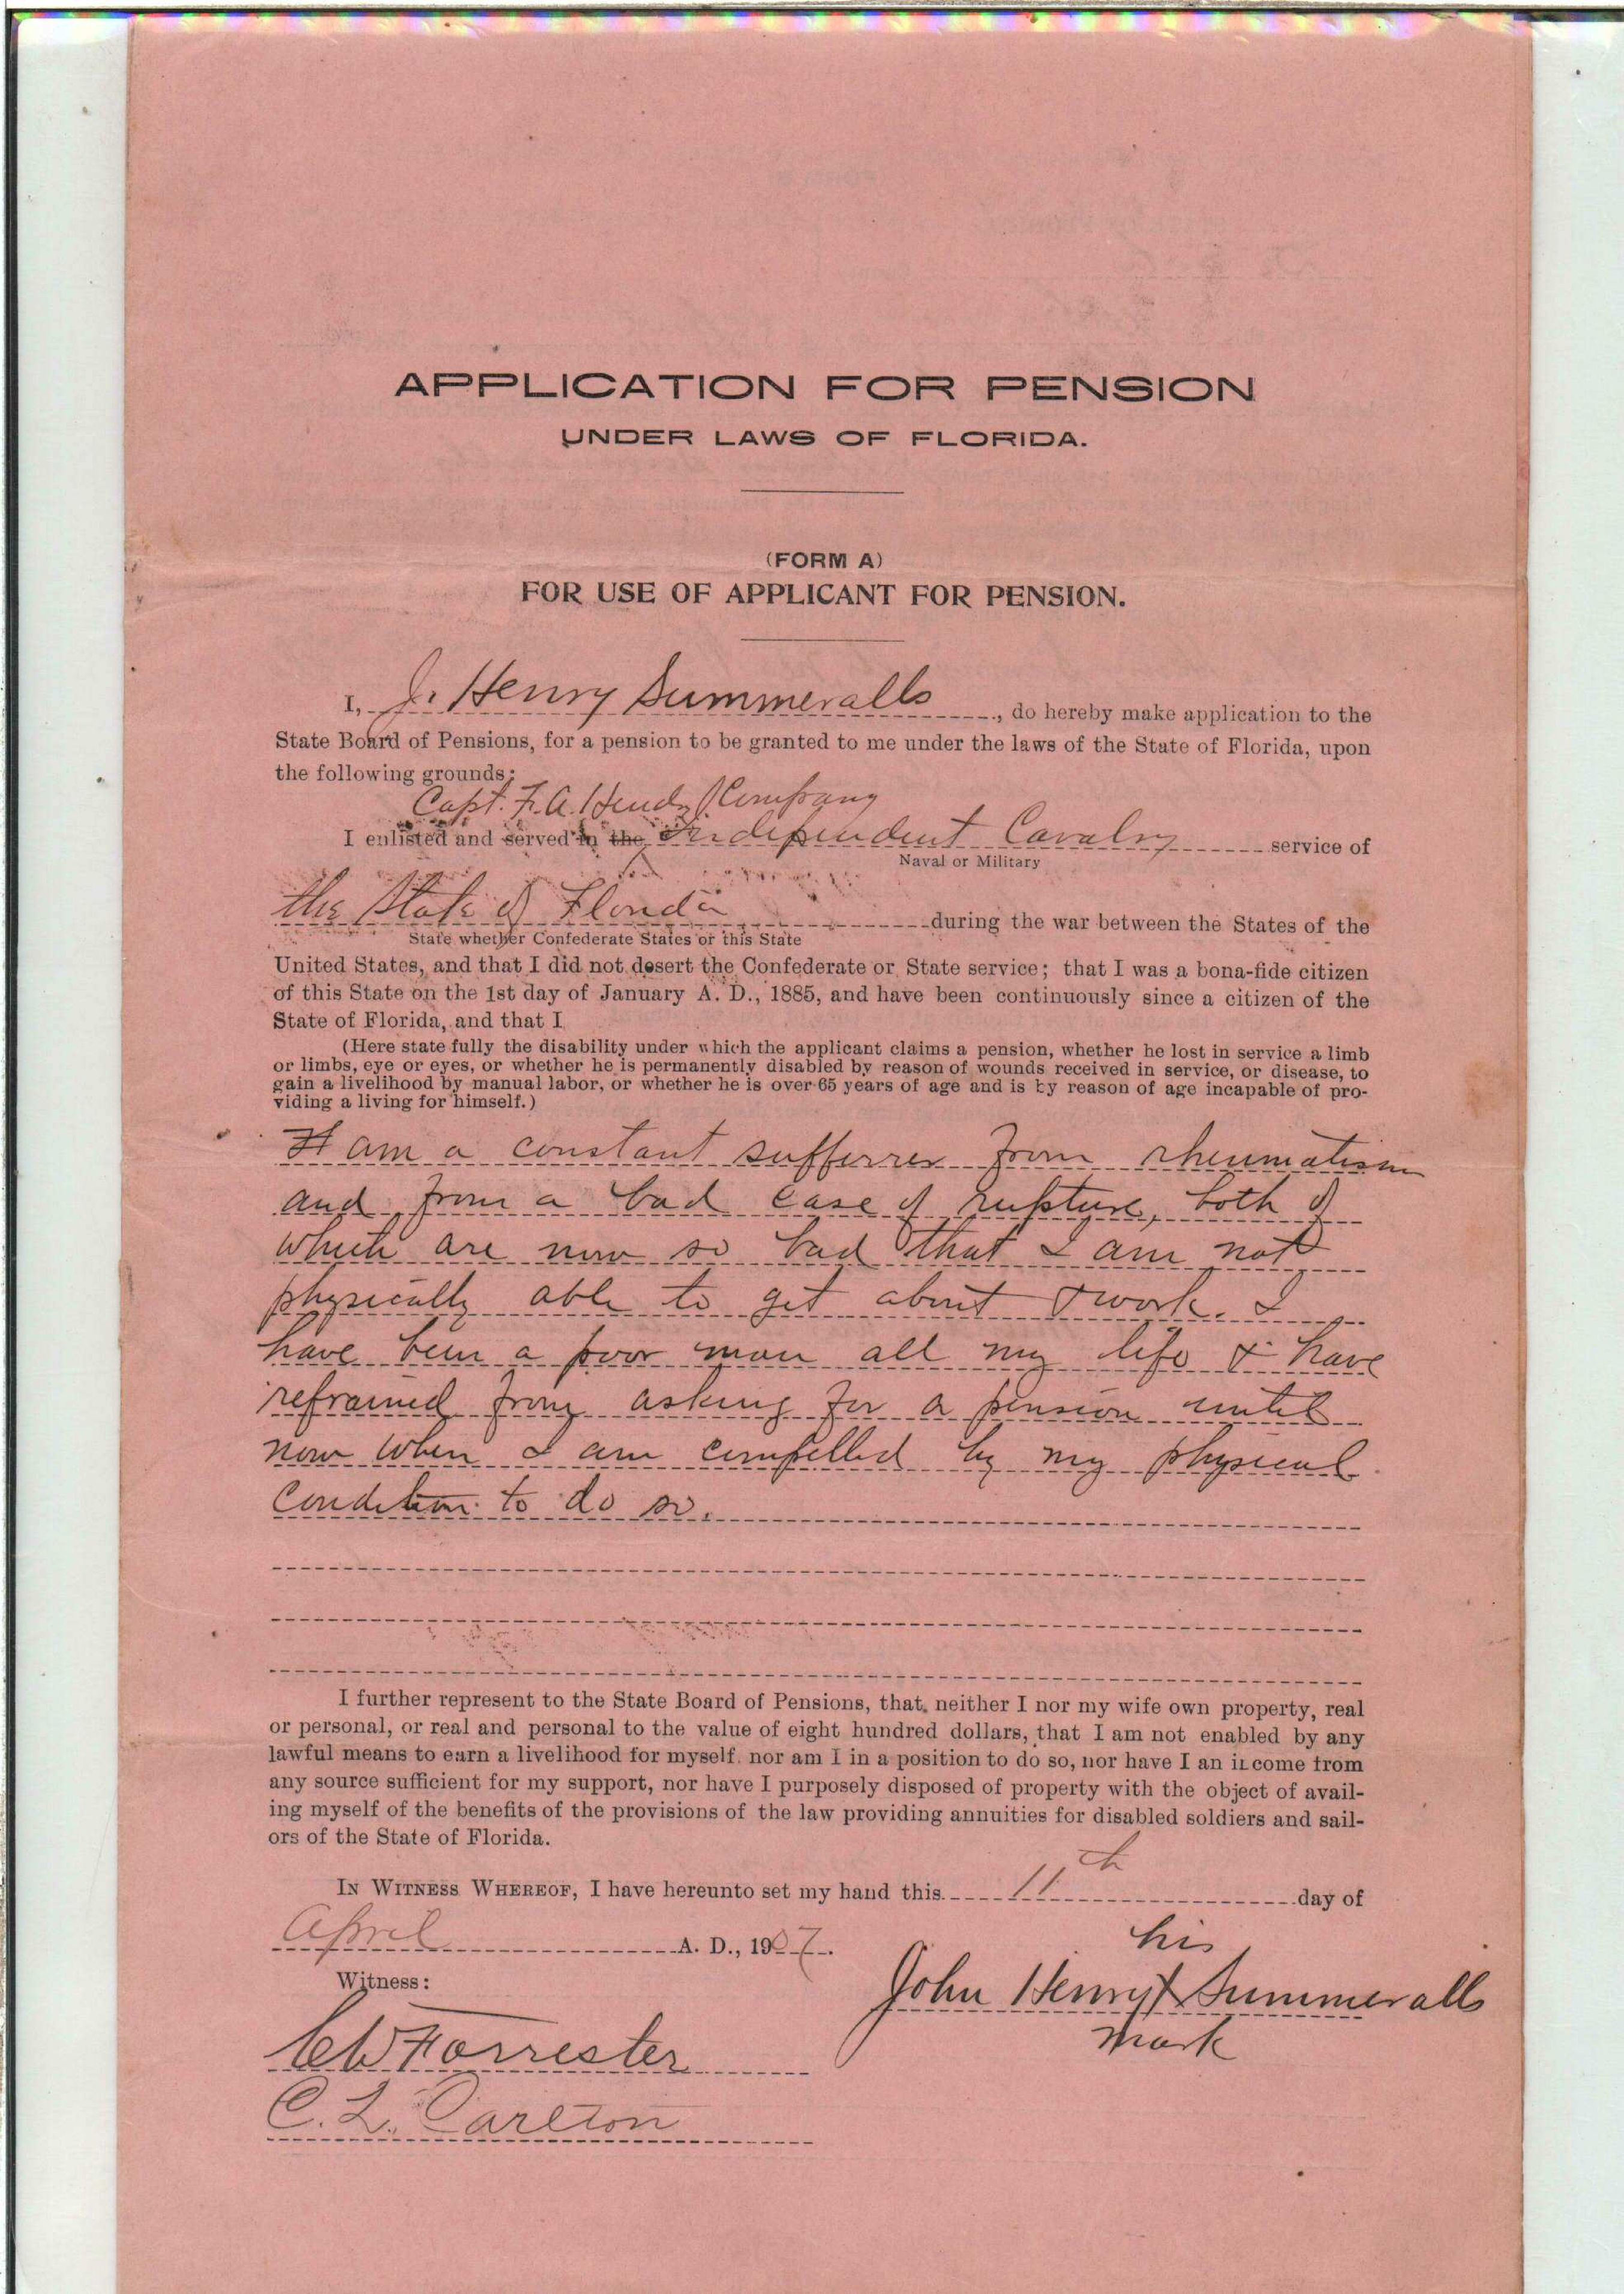 APPLICATION FOR PENSION
UNDER LAWS OF FLORIDA.
(FORM A)
FOR USE OF APPLICANT FOR PENSION.
I, J. Henry Summeralls, do hereby make application to the
State Board of Pensions, for a pension to be granted to me under the laws of the State of Florida, upon
the following grounds:
Capt. F. A. Hendry Company
I enlisted and served in the Independent Cavalry service of
Naval or Military
the State of Florida during the war between the States of the
State whether Confederate States or this State
United States, and that I did not desert the Confederate or State service; that I was a bona-fide citizen
of this State on the 1st day of January A. D., 1885, and have been continuously since a citizen of the
State of Florida, and that I
(Here state fully the disability under which the applicant claims a pension, whether he lost in service a limb
or limbs, eye or eyes, or whether he is permanently disabled by reason of wounds received in service, or disease, to
gain a livelihood by manual labor, or whether he is over 65 years of age and is by reason of age incapable of pro-
viding a living for himself.)
I am a constant sufferrer from rheumatism
and from a bad case of rupture, both of
which are now so bad that I am not
physically able to get about & work. I
have been a poor man all my life & have
refrained from asking for a pension until
now when I am compelled by my physical
condition to do so.
I further represent to the State Board of Pensions, that, neither I nor my wife own property, real
or personal, or real and personal to the value of eight hundred dollars, that I am not enabled by any
lawful means to earn a livelihood for myself, nor am I in a position to do so, nor have I an income from
any source sufficient for my support, nor have I purposely disposed of property with the object of avail-
ing myself of the benefits of the provisions of the law providing annuities for disabled soldiers and sail-
ors of the State of Florida.
IN WITNESS WHEREOF, I have hereunto set my hand this 11th day of
April A. D., 1907.
his
Witness:
John Henry X Summeralls
mark
C W Forrester
C. L. Carlton